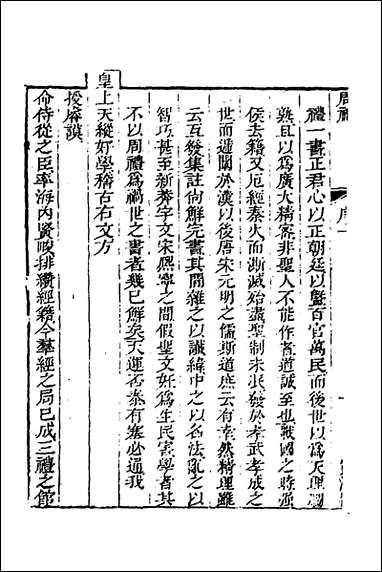 周禮 序一
禮一書正君心以正朝廷以曁百官萬民而後世以爲天理爛
熟且以爲廣大精密非聖人不能作者道誠至也戰國之時强
侯去籍又厄經秦火而澌滅殆盡聖制未泯發於孝武孝成之
世而遞闡於漢以後唐宋元明之儒斯道庶云有幸然精理雖
云互發集註尙鮮完書其間雜之以讖緯申之以名法亂之以
智巧甚至新莽字文宋熙寧之間假聖文奸爲生民害學者其
不以周禮爲禍世之書者幾已鮮矣天運否泰有塞必通我
皇上天縱好學稽古右文方
授麻謨
命侍從之臣率海內賢畯排纘經籍今羣經之局已成三禮之館